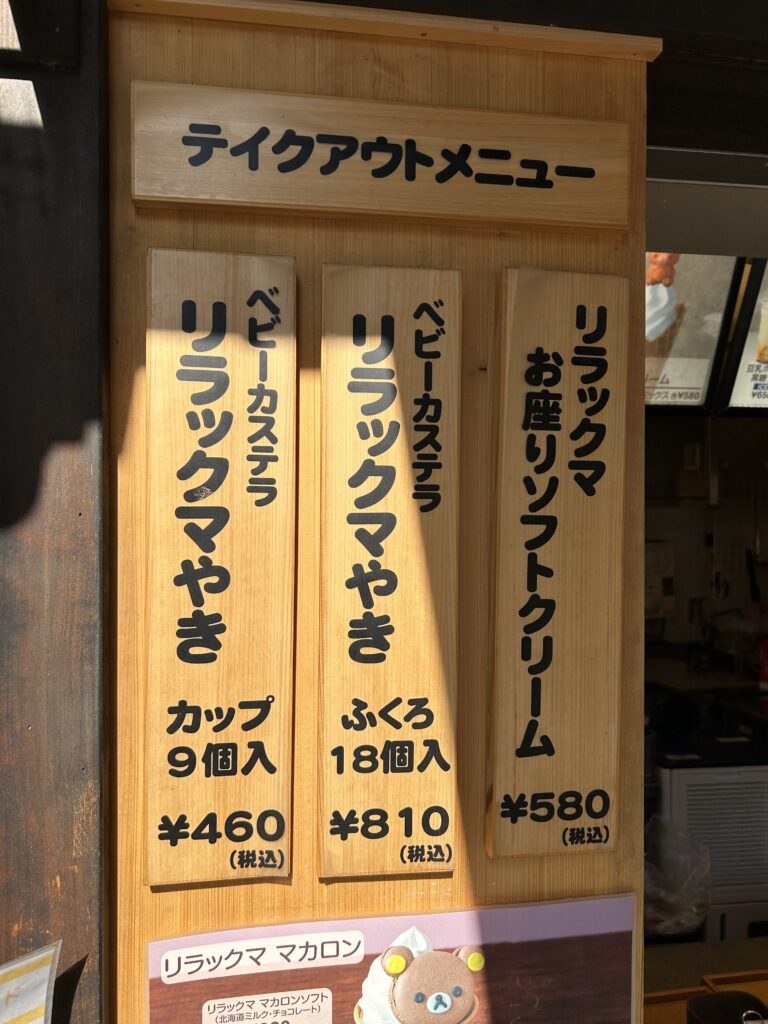 テイクアウトメニュー
ベビーカステラ
リラックマやき
カップ
9個入
¥460
(税込)
ベビーカステラ
リラックマやき
ふくろ
18個入
¥810
(税込)
リラックマ
お座りソフトクリーム
¥580
(税込)
リラックマ マカロン
リラックマ マカロンソフト
(北海道ミルク・チョコレート)
ーム
ックス各¥580
黒糖
ICE